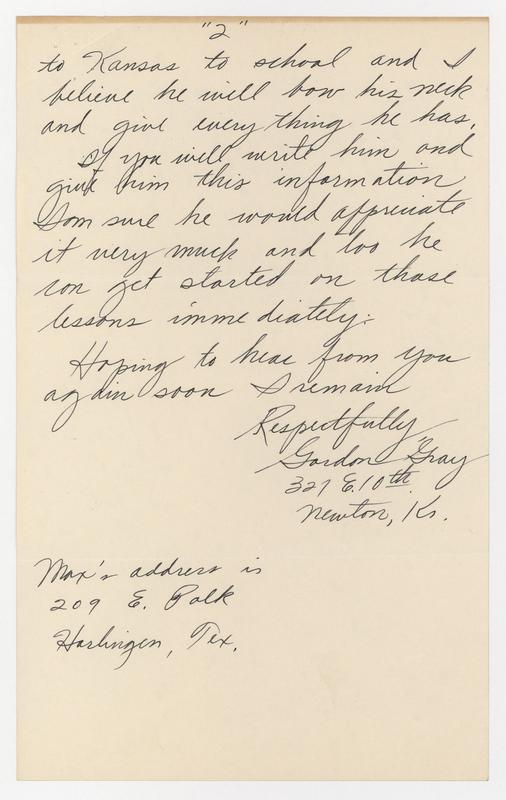 "2"
to Kansas to school and I
believe he will bow his neck
and give every thing he has.
If you will write him and
give him this information
I am sure he would appreciate
it very much and too he
can get started on those
lessons immediately.
Hoping to hear from you
again soon I remain
Respectfully
Gordon Gray
327 E. 10th.
Newton, Ks.
Max's address is
209 E. Polk
Harlingen, Tex.